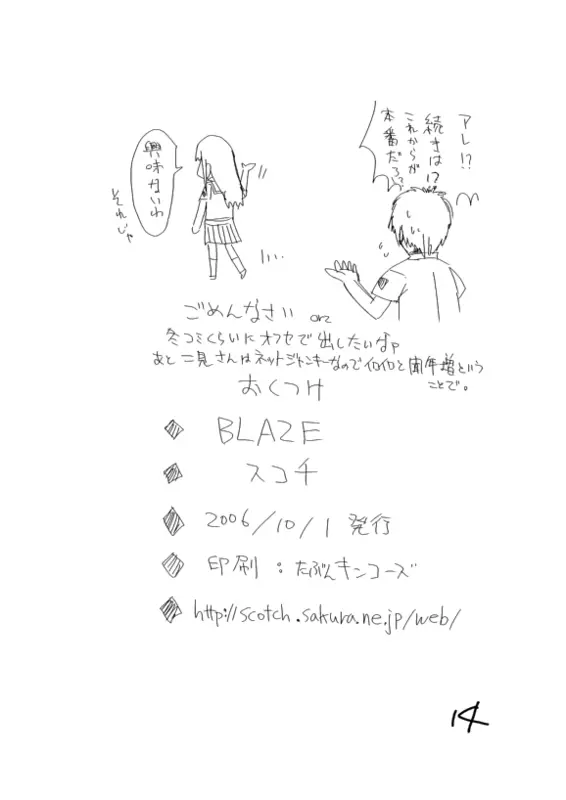 アレ!?
続きは!?
これからが
本番だろ?
興味ないわ
それじゃ
ごめんなさい orz
冬コミくらいにオフセで出したいなァ
あと二見さんはネットジャンキーなのでイロイロと
ということで。
おくつけ
BLAZE
スコチ
2006/10/1 発行
印刷:たぶんキンコーズ
http://scotch.sakura.ne.jp/web/
14